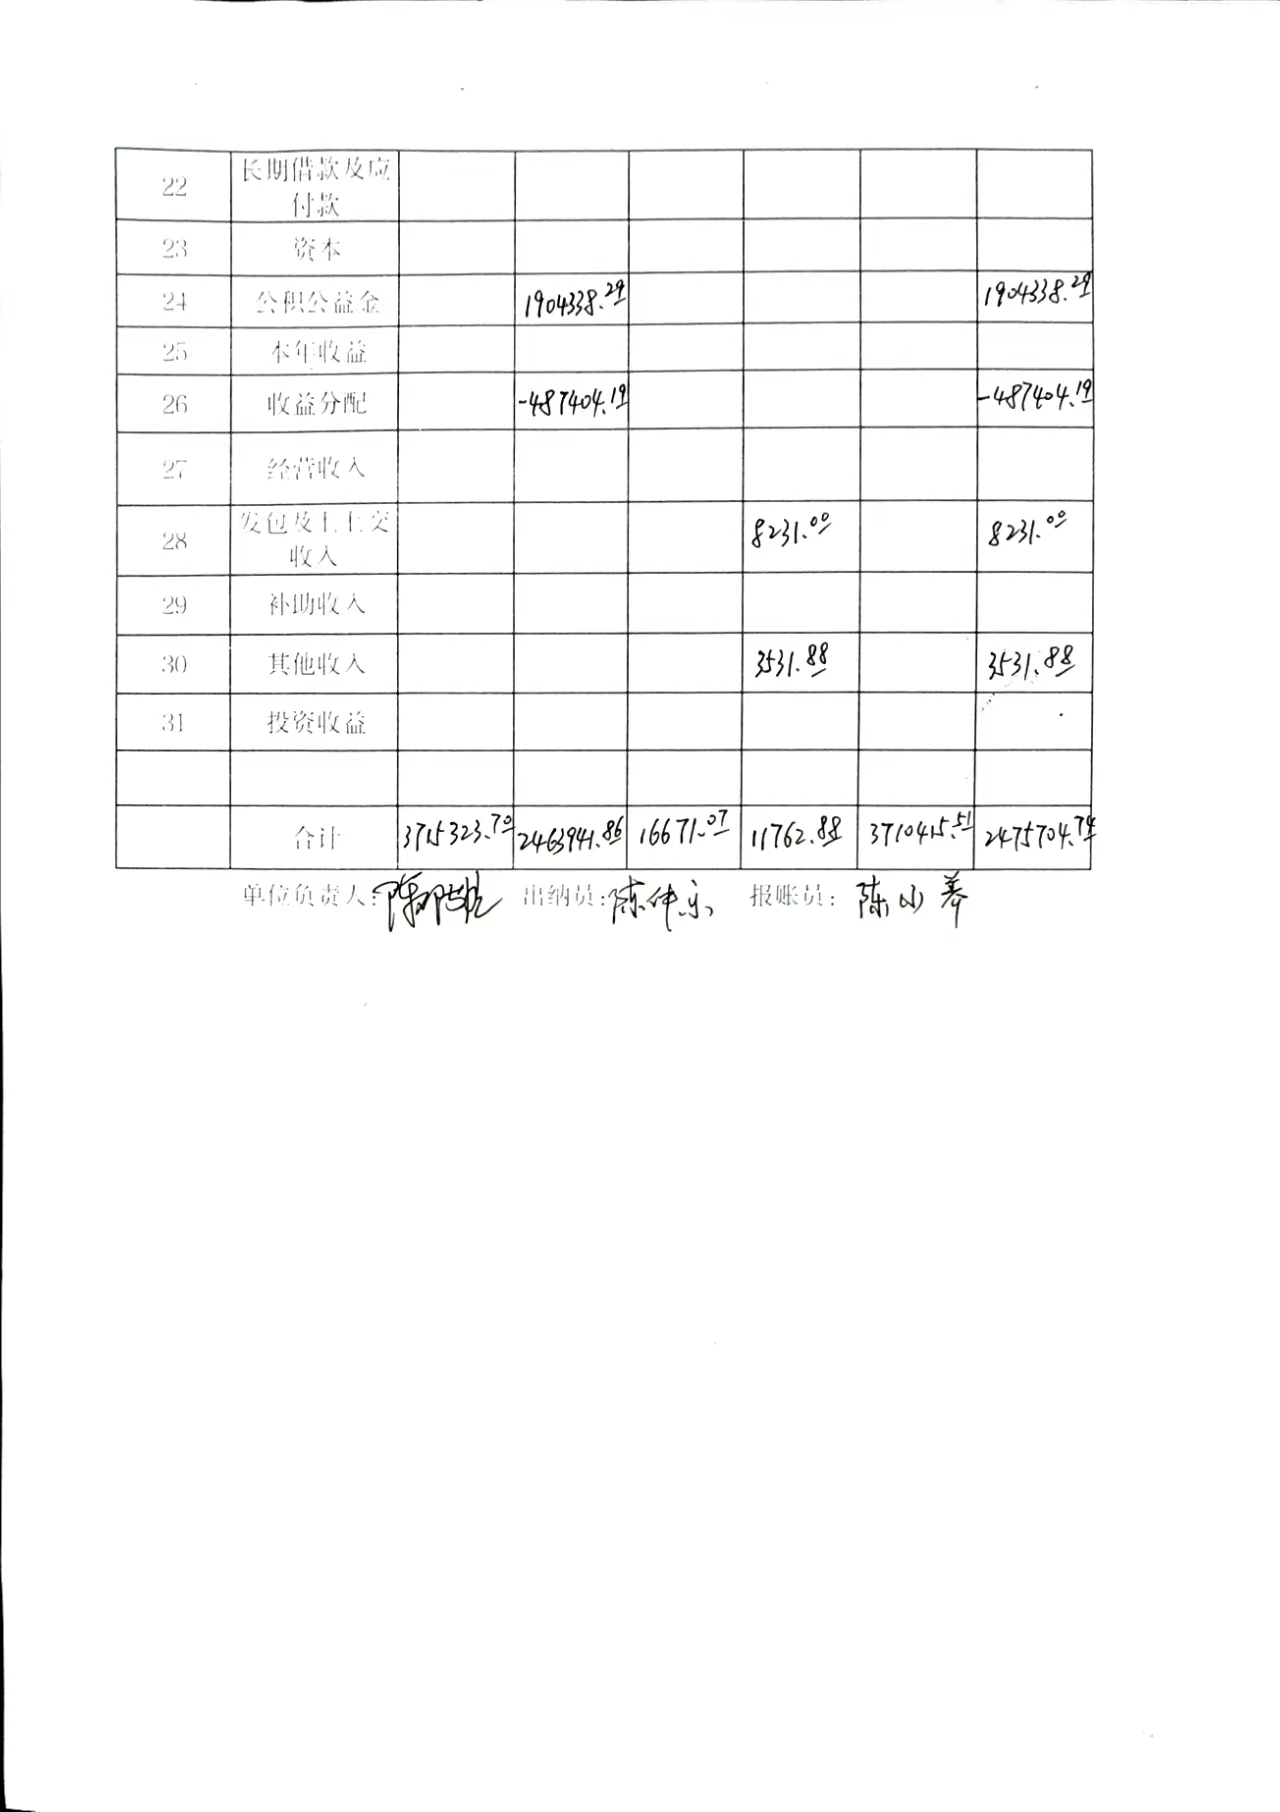 22 长期借款及应
付款
23 资本
24 公积公益金 1904338.29 1904338.29
25 本年收益
26 收益分配 -487404.19 -487404.19
27 经营收入
28 发包及上上交
收入 8231.00 8231.00
29 补助收入
30 其他收入 3531.88 3531.88
31 投资收益
合计 3715323.70 2463941.86 16671.07 11762.88 3710415.51 2475704.74
单位负责人: 陈 出纳员: 陈仲 报账员: 陈小养